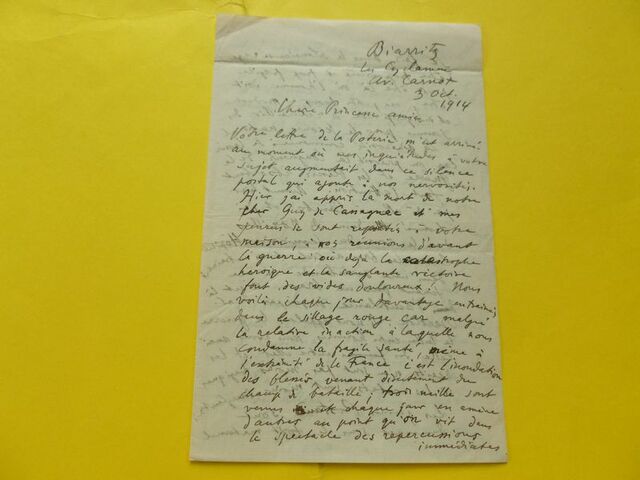 Biarritz
Les Cyclamens
Av. Carnot
3 Oct.
1914
Chère Princesse amie
Votre lettre de la Poterie m'est arrivée
au moment où mes inquiétudes à votre
sujet augmentait dans ce silence
postal qui ajoute à nos nervosités.
Hier j'ai appris la mort de notre
cher Guy de Cassagnac et mes
pensées se sont reportées à votre
maison, à nos réunions d'avant
la guerre où déjà la catastrophe
héroïque et la sanglante victoire
font des vides douloureux! Nous
voilà chaque jour davantage entraînés
dans le sillage rouge car malgré
la relative inaction à laquelle nous
condamne la fragile santé, même à
l'extrémité de la France c'est l'inondation
des blessés venant directement du
champ de bataille; trois mille sont
venus chaque jour en amène
d'autres au point qu'on vit dans
le spectacle des repercussions
immédiates